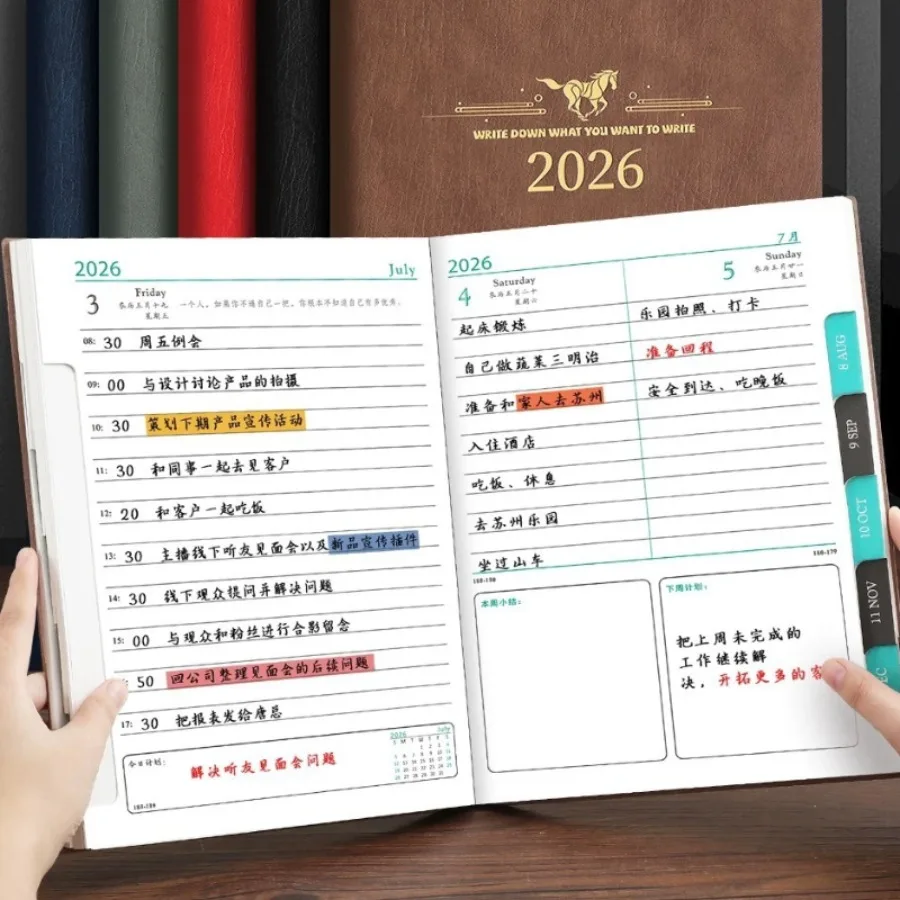 WRITE DOWN WHAT YOU WANT TO WRITE
2026
2026 July
3 Friday
农历五月十九 一个人,如果你不逼自己一把,你根本不知道自己有多优秀。
星期五
08: 30 周五例会
09: 00 与设计讨论产品的拍摄
10: 30 策划下期产品宣传活动
11: 30 和同事一起去见客户
12: 20 和客户一起吃饭
13: 30 主播线下听友见面会以及新品宣传插件
14: 30 线下观众提问并解决问题
15: 00 与观众和粉丝进行合影留念
50 回公司整理见面会的后续问题
17: 30 把报表发给唐总
今日计划:
解决听友见面会问题
2026 July
S M T W T F S
2026 7月
4 Saturday
农历五月二十
星期六
起床锻炼
自己做蔬菜三明治
准备和家人去苏州
入住酒店
吃饭、休息
去苏州乐园
坐过山车
5 Sunday
农历五月廿一
星期日
乐园拍照、打卡
准备回程
安全到达、吃晚饭
本周小结:
下周计划:
把上周未完成的
工作继续解
决,开拓更多的客
8 AUG
9 SEP
10 OCT
11 NOV